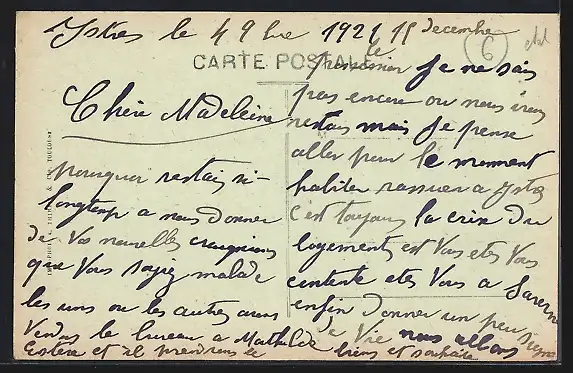 Istres le 4 9bre 1921 15 decembre
CARTE POSTALE
6
Chère Madeleine
pourquoi restais si-
longtemp a nous donner
de Vos nouvelles craignions
que Vous soyiez malade
les uns ou les autres avons
Vendus le bureau a Mathilde
Estère et il prendrons le
pensionnier Je ne sais
pas encore ou nous irons
restais mais Je pense
aller pour le momment
habiter rassuer a Istres
C'est toujours la crise du
logements et Vous etes Vous
contente etes Vous a Saverne
enfin donner un peu signe
de Vie nous allons
biens et souhaite